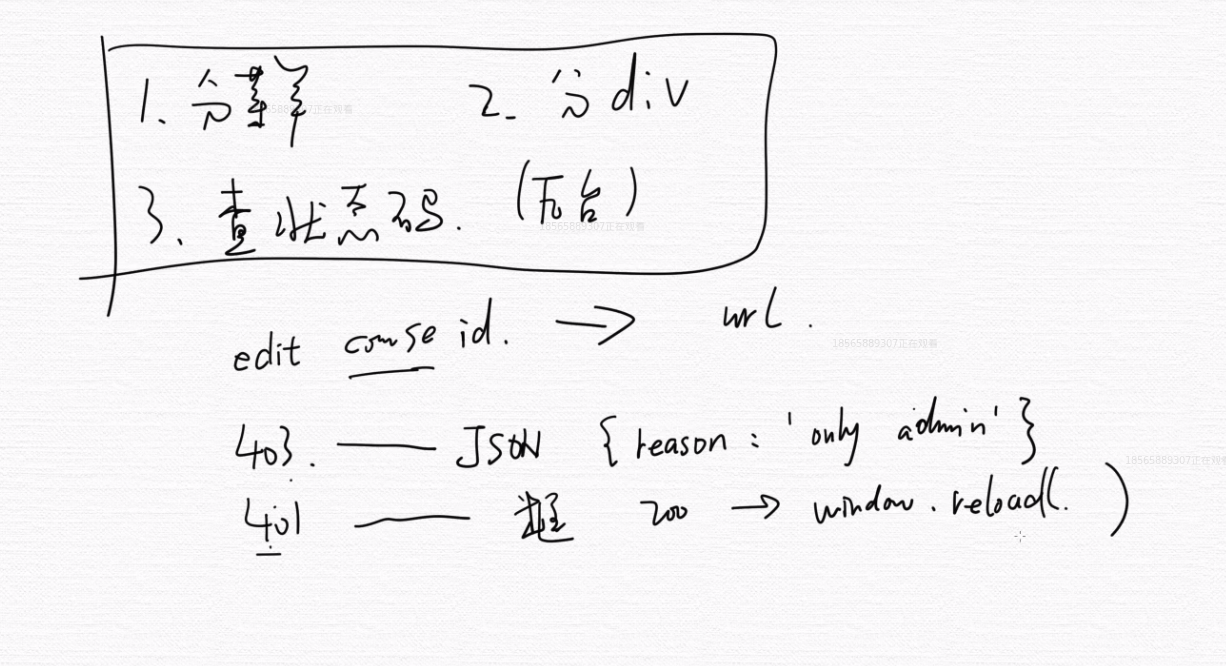 1. 分 2. 分 div
3. 查状态码. (后台)
edit course id. → url.
403. — JSON { reason : 'only admin' }
401 — 框 200 → window.reload(. )
18565889307正在观看
18565889307正在观看
18565889307正在观看